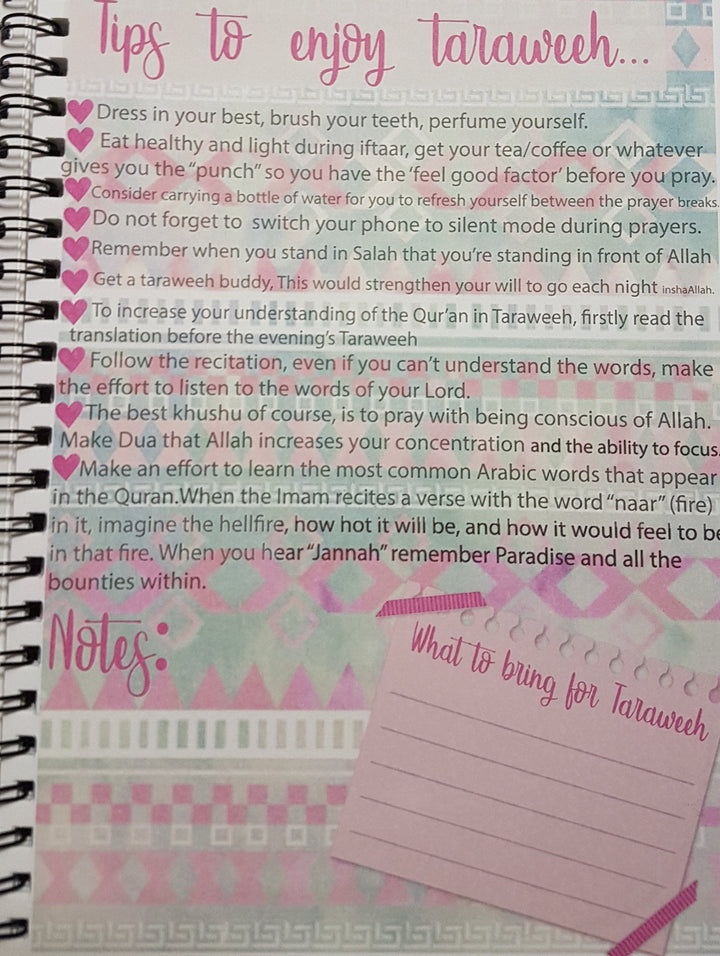 Tips to enjoy taraweeh...
Dress in your best, brush your teeth, perfume yourself.
Eat healthy and light during iftaar, get your tea/coffee or whatever
gives you the "punch" so you have the 'feel good factor' before you pray.
Consider carrying a bottle of water for you to refresh yourself between the prayer breaks.
Do not forget to switch your phone to silent mode during prayers.
Remember when you stand in Salah that you're standing in front of Allah
Get a taraweeh buddy, This would strengthen your will to go each night inshaAllah.
To increase your understanding of the Qur'an in Taraweeh, firstly read the
translation before the evening's Taraweeh
Follow the recitation, even if you can't understand the words, make
the effort to listen to the words of your Lord.
The best khushu of course, is to pray with being conscious of Allah.
Make Dua that Allah increases your concentration and the ability to focus.
Make an effort to learn the most common Arabic words that appear
in the Quran.When the Imam recites a verse with the word "naar" (fire)
in it, imagine the hellfire, how hot it will be, and how it would feel to be
in that fire. When you hear "Jannah" remember Paradise and all the
bounties within.
Notes:
What to bring for Taraweeh